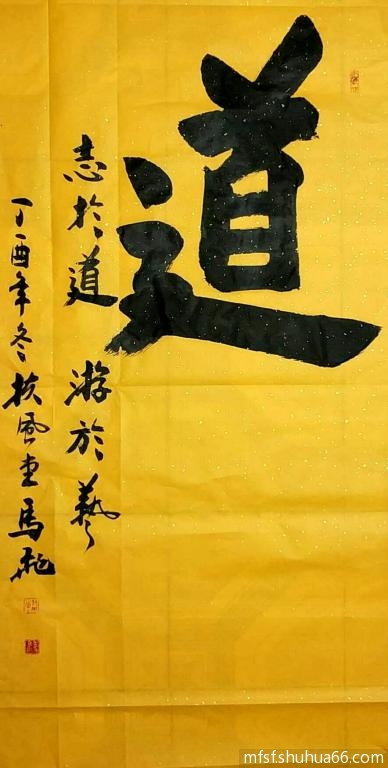 道
志於道 游於藝
丁酉年冬扶風堂馬
mfsf.shuhua66.com